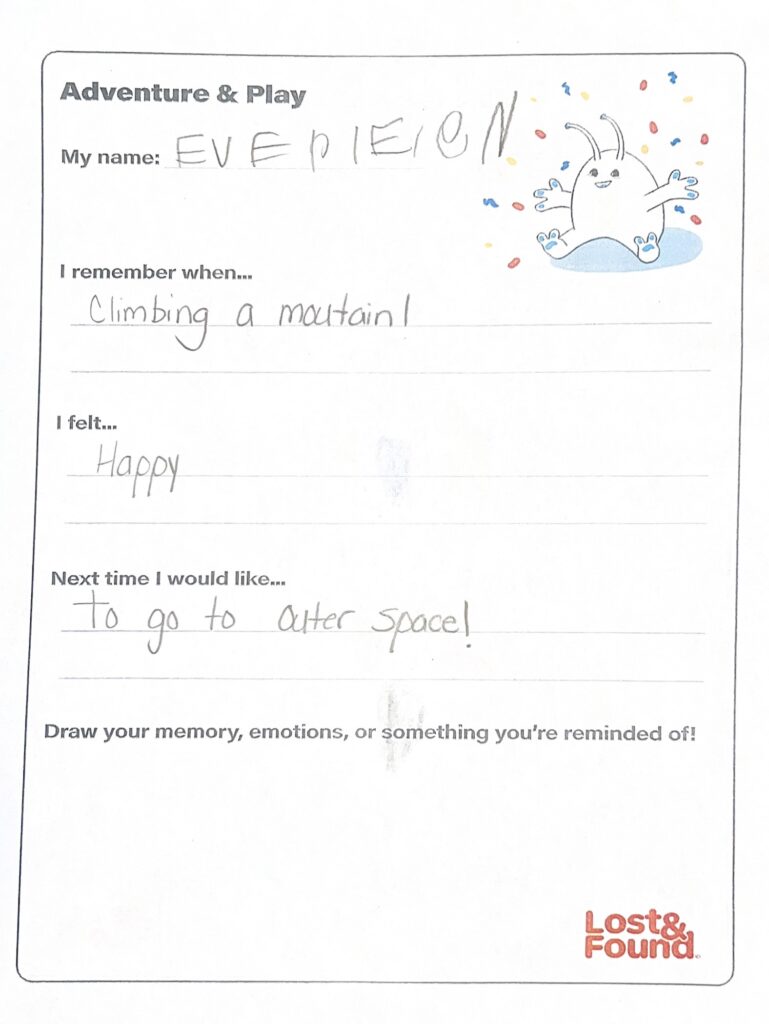 Adventure & Play
My name: EVE
I remember when...
Climbing a moutain!
I felt...
Happy
Next time I would like...
to go to outer space!
Draw your memory, emotions, or something you're reminded of!
Lost&
Found